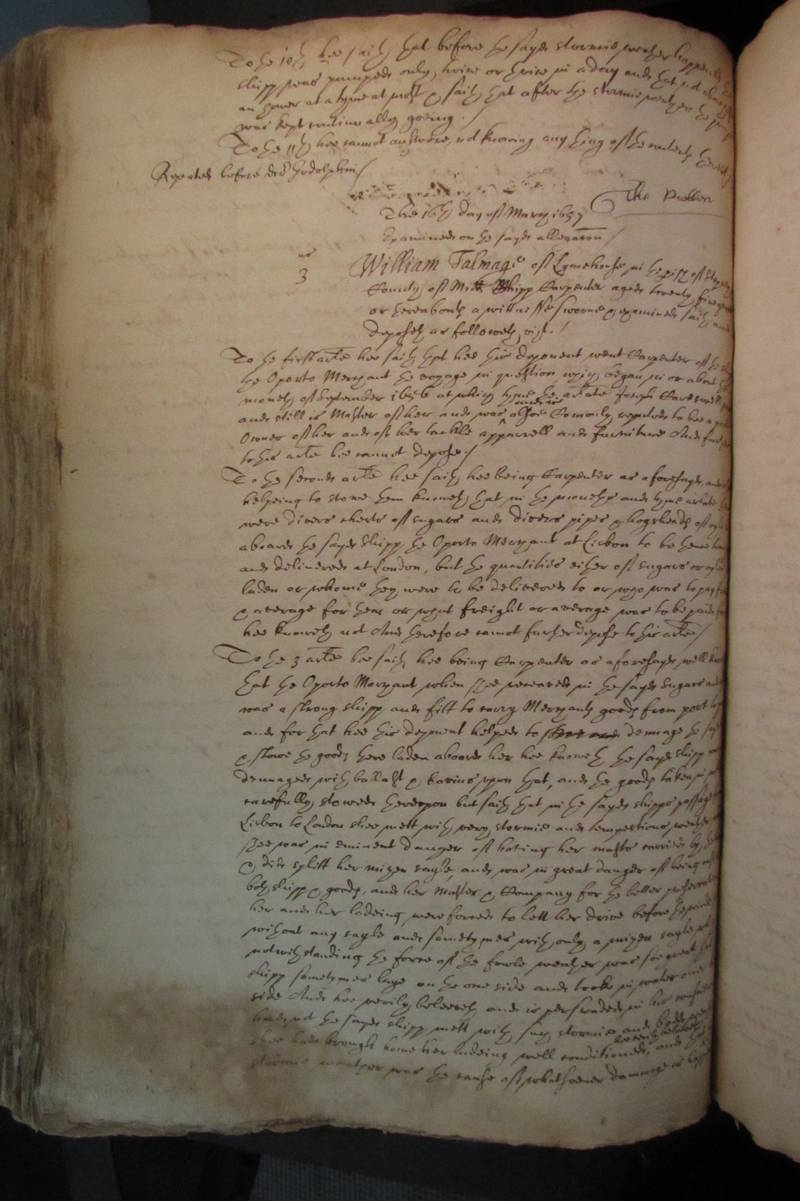 To the 10th hee saith that before the sayd stormie weather happened the
shipp was pumped only twice or thrice in a day and that not above
an hower at a tyme at most & saith that after the stormie weather the pump
was kept continually going./
To the 11th hee cannot answere, not knowing any thing of the contents thereof
Repeated before doctor Godolphin/
The 16th day of March 1657
Examined on the sayd allegation/
3
William Talmage of Lymehouse in the parish of Stepney
County of Midd Shipp Carpenter aged twenty five yeares
or thereabouts a witnesse sworne & examined saith and
deposeth as followeth, vizt./
To the first arle hee saith that hee this deponent went Carpenter of the
the Oporto Merchant the voyage in question which began in or about the
moneth of September 1656 at which tyme the arlate Joseph Careswell
and still is Master of her and was & is Comonly reputed to bee a part
Owner of her and of her tackle apparrell and furniture And further
to this arle hee cannot depose./
To the second arle hee saith, hee being Carpenter as aforesayd, and
helpeing to stowe them knoweth that in the moneths and tyme arlate there
were divers chests of sugars and divers pipes & hogsheads of oyle
aboard the sayd shipp the Oporto Merchant at Lisbon to be thence
and delivered at London, but the quantities either of sugars or oyles
laden or whome they were to be delivered to or who was to pay freight
& average for them or what freight or average was to be paid for
hee knoweth not And therefore cannot further depose to this arle/
To the 3 arle hee saith, hee being Carpenter as aforesayd, well
that the Oporto Merchant when shee received in the sayd sugars and
was a strong shipp and fitt to carry Merchants goods from port to
and for that hee this deponent helped to dennage the sayd
& stowe the goods there laden aboard her hee knoweth the sayd shipp
dennaged with ballast & bavins upon that, and the goods taken in
carefully stowed thereupon but saith that in the sayd shipps passage
Lisbon to London shee mett with very stormie and tempestious weather
shee was in eminent danger of having her masts carried by
& did splitt her mizen sayle, and was in great danger of being
both shipp & goods, and her Master & Company for the better preservation
her and her ladeing were forced to lett her drive before the
without any sayle and sometymes with only a mizen sayle
notwithstanding the force of the fowle weather was soe great
shipp sometymes laye on the one side and tooke in water
side And hee verily beleeveth and is perswaded in his
had not the sayd shipp mett with such stormie and
shee had brought home her ladeing well conditioned, and
stormie weather was the cause of whatsoever dammage